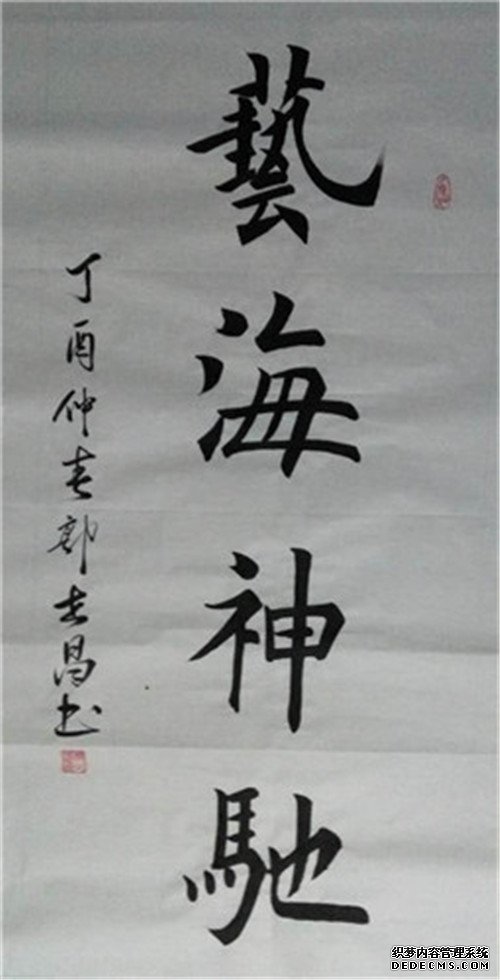 藝海神馳
丁酉仲春郭志昌书
织梦内容管理系统
DEDECMS.COM